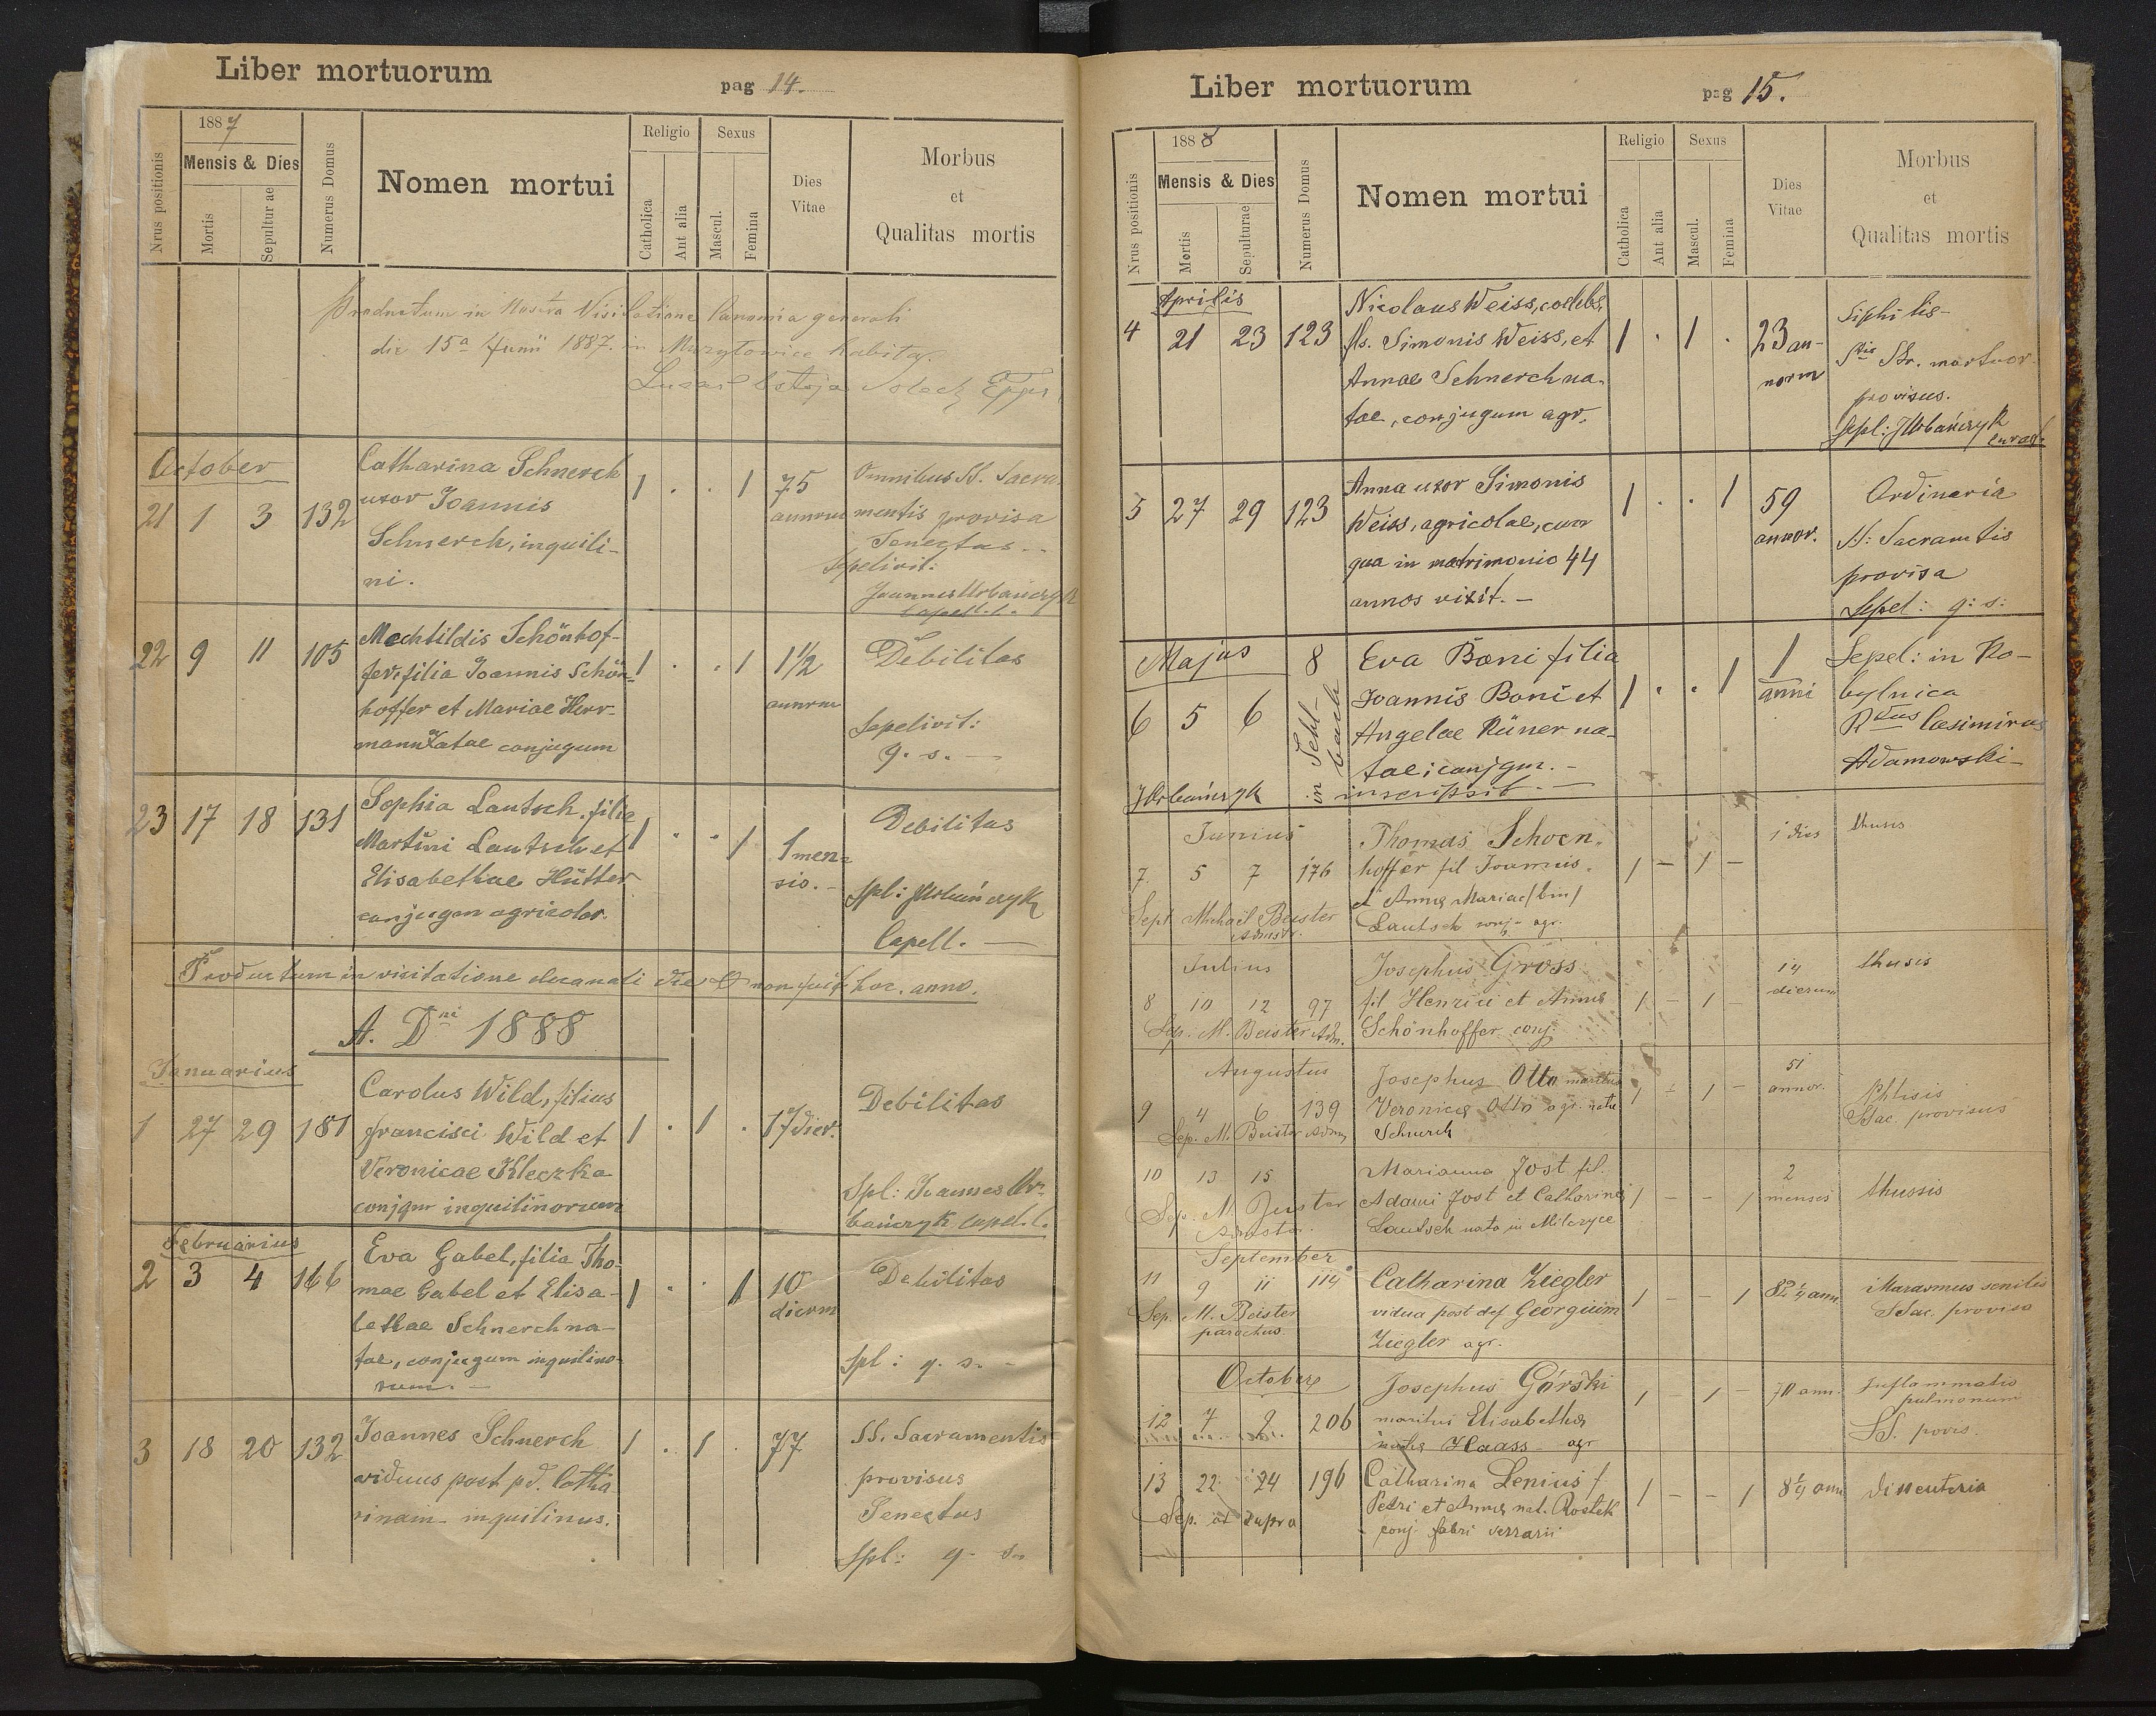 Liber mortuorum
pag 14.
Nrus positionis
1887
Mensis & Dies
Mortis
Sepulturae
Numerus Domus
Nomen mortui
Religio
Catholica
Aut alia
Sexus
Mascul.
Femina
Dies
Vitae
Morbus
et
Qualitas mortis
Productum in Nostra Visitatione Canonica generali
die 15a Junii 1887. in habita.
October
21 1 3 132
Catharina Schnerch
uxor Joannis
Schnerch, inquili-
ni.
1 . . 1
75
annrum
Omnibus SS. Sacra
mentis provisa
Senectus..
Sepelivit:
Joannes Urbańczyk
Capell. l.
22 9 11 105
Mechtildis Schönhof-
fer filia Joannis Schön-
hoffer et Mariae Herr-
mann natae conjugum
1 . . 1
1½
annrum
Debilitas
Sepelivit:
q. s. —
23 17 18 131
Sophia Lautsch, filia
Martini Lautsch et
Elisabethae Hütter
conjugum agricolar.
1 . . 1
1 men-
sis. -
Debilitas
Spl: JUrbańczyk
Capell. —
Productum in visitatione decanali die O non fuit hoc. anno.
A. Dni 1888
Januarius
1 27 29 181
Carolus Wild, filius
Francisci Wild et
Veronicae Kleczka
conjgm inquilinorum
1 . 1 .
17 dier.
Debilitas
Spl: Joannes Ur-
bańczyk capel. l.
Februarius
2 3 4 166
Eva Gabel, filia Tho-
mae Gabel et Elisa-
bethae Schnerch na-
tae, conjugum inquilino-
rum. —
1 . . 1
10
dierm
Debilitas
Spl: q. s. -
3 18 20 132
Joannes Schnerch
viduus post pd. Catha
rinam - inquilinus.
1 . 1 .
77
SS. Sacramentis
provisus
Senectus
Spl: q. s.
Liber mortuorum
pag 15.
Nrus positionis
1888
Mensis & Dies
Mortis
Sepulturae
Numerus Domus
Nomen mortui
Religio
Catholica
Aut alia
Sexus
Mascul.
Femina
Dies
Vitae
Morbus
et
Qualitas mortis
Aprilis
4 21 23 123
Nicolaus Weiss, coelebs,
fls. Simonis Weiss, et
Annae Schnerch na-
tae, conjugum agr.
1 . 1 .
23 an-
norm
Siphilis-
provisus.
Sepl: JUrbańczyk
5 27 29 123
Anna uxor Simonis
Weiss, agricolae, cum
qua in matrimonio 44
annos vixit. —
1 . . 1
59
annor.
Ordinaria
SS: Sacramtis
provisa
Sepel: q: s:
Majus
6 5 6
8
in Fehl-
bach
Eva Boni filia
Joannis Boni et
Angelae Rüner na-
tae; conjgm. -
JUrbańczyk inscripsit. —
1 . . 1
1
anni
Sepel: in Ko-
bylnica
Rdus Casimirus
Adamowski —
Junius
7. 5 7 176
Thomas Schoen-
hoffer fil Joannis.
et Annae Mariae /bin/
Lautsch conj. agr.
Sept Michael Beister
Admstr.
1 - 1 -
1 dies
thusis
Julius
8 10 12 97
Josephus Gross
fil Henrici et Annae
Schönhoffer conj
Sep. M. Beister Adm.
1 - 1 -
14
dierum
thusis
Augustus
9 4 6 139
Josephus Otto maritus
Veronicae Otto agr. natae
Schnerch
Sep. M. Beister Adm
1 - 1 -
51
annor.
Phtisis
SSac. provisus
10 13 15
Marianna Jost fil.
Adami Jost et Catharinae
Lautsch nata in Milczyce
Sep. M. Beister
Admstr.
1 - - 1
2
menses
thussis
September
11 9 11 114
Catharina Ziegler
vidua post def Georgium
Ziegler agr.
Sep. M. Beister
parochus
1 - - 1
82 ¼ ann.
Marasmus senilis
SSac. provisa
October
12 7 9. 206
Josephus Górski
maritus Elisabethae
natae Haass - agr
1 - 1 -
70 ann.
Inflammatio
pulmonum
SS. provis.
13 22. 24 196
Catharina Lenius f.
Petri et Annae nat. Rostek
conj fabri ferrarii
Sep. ut supra
1 - - 1
8 ¼ ann
Dissenteria